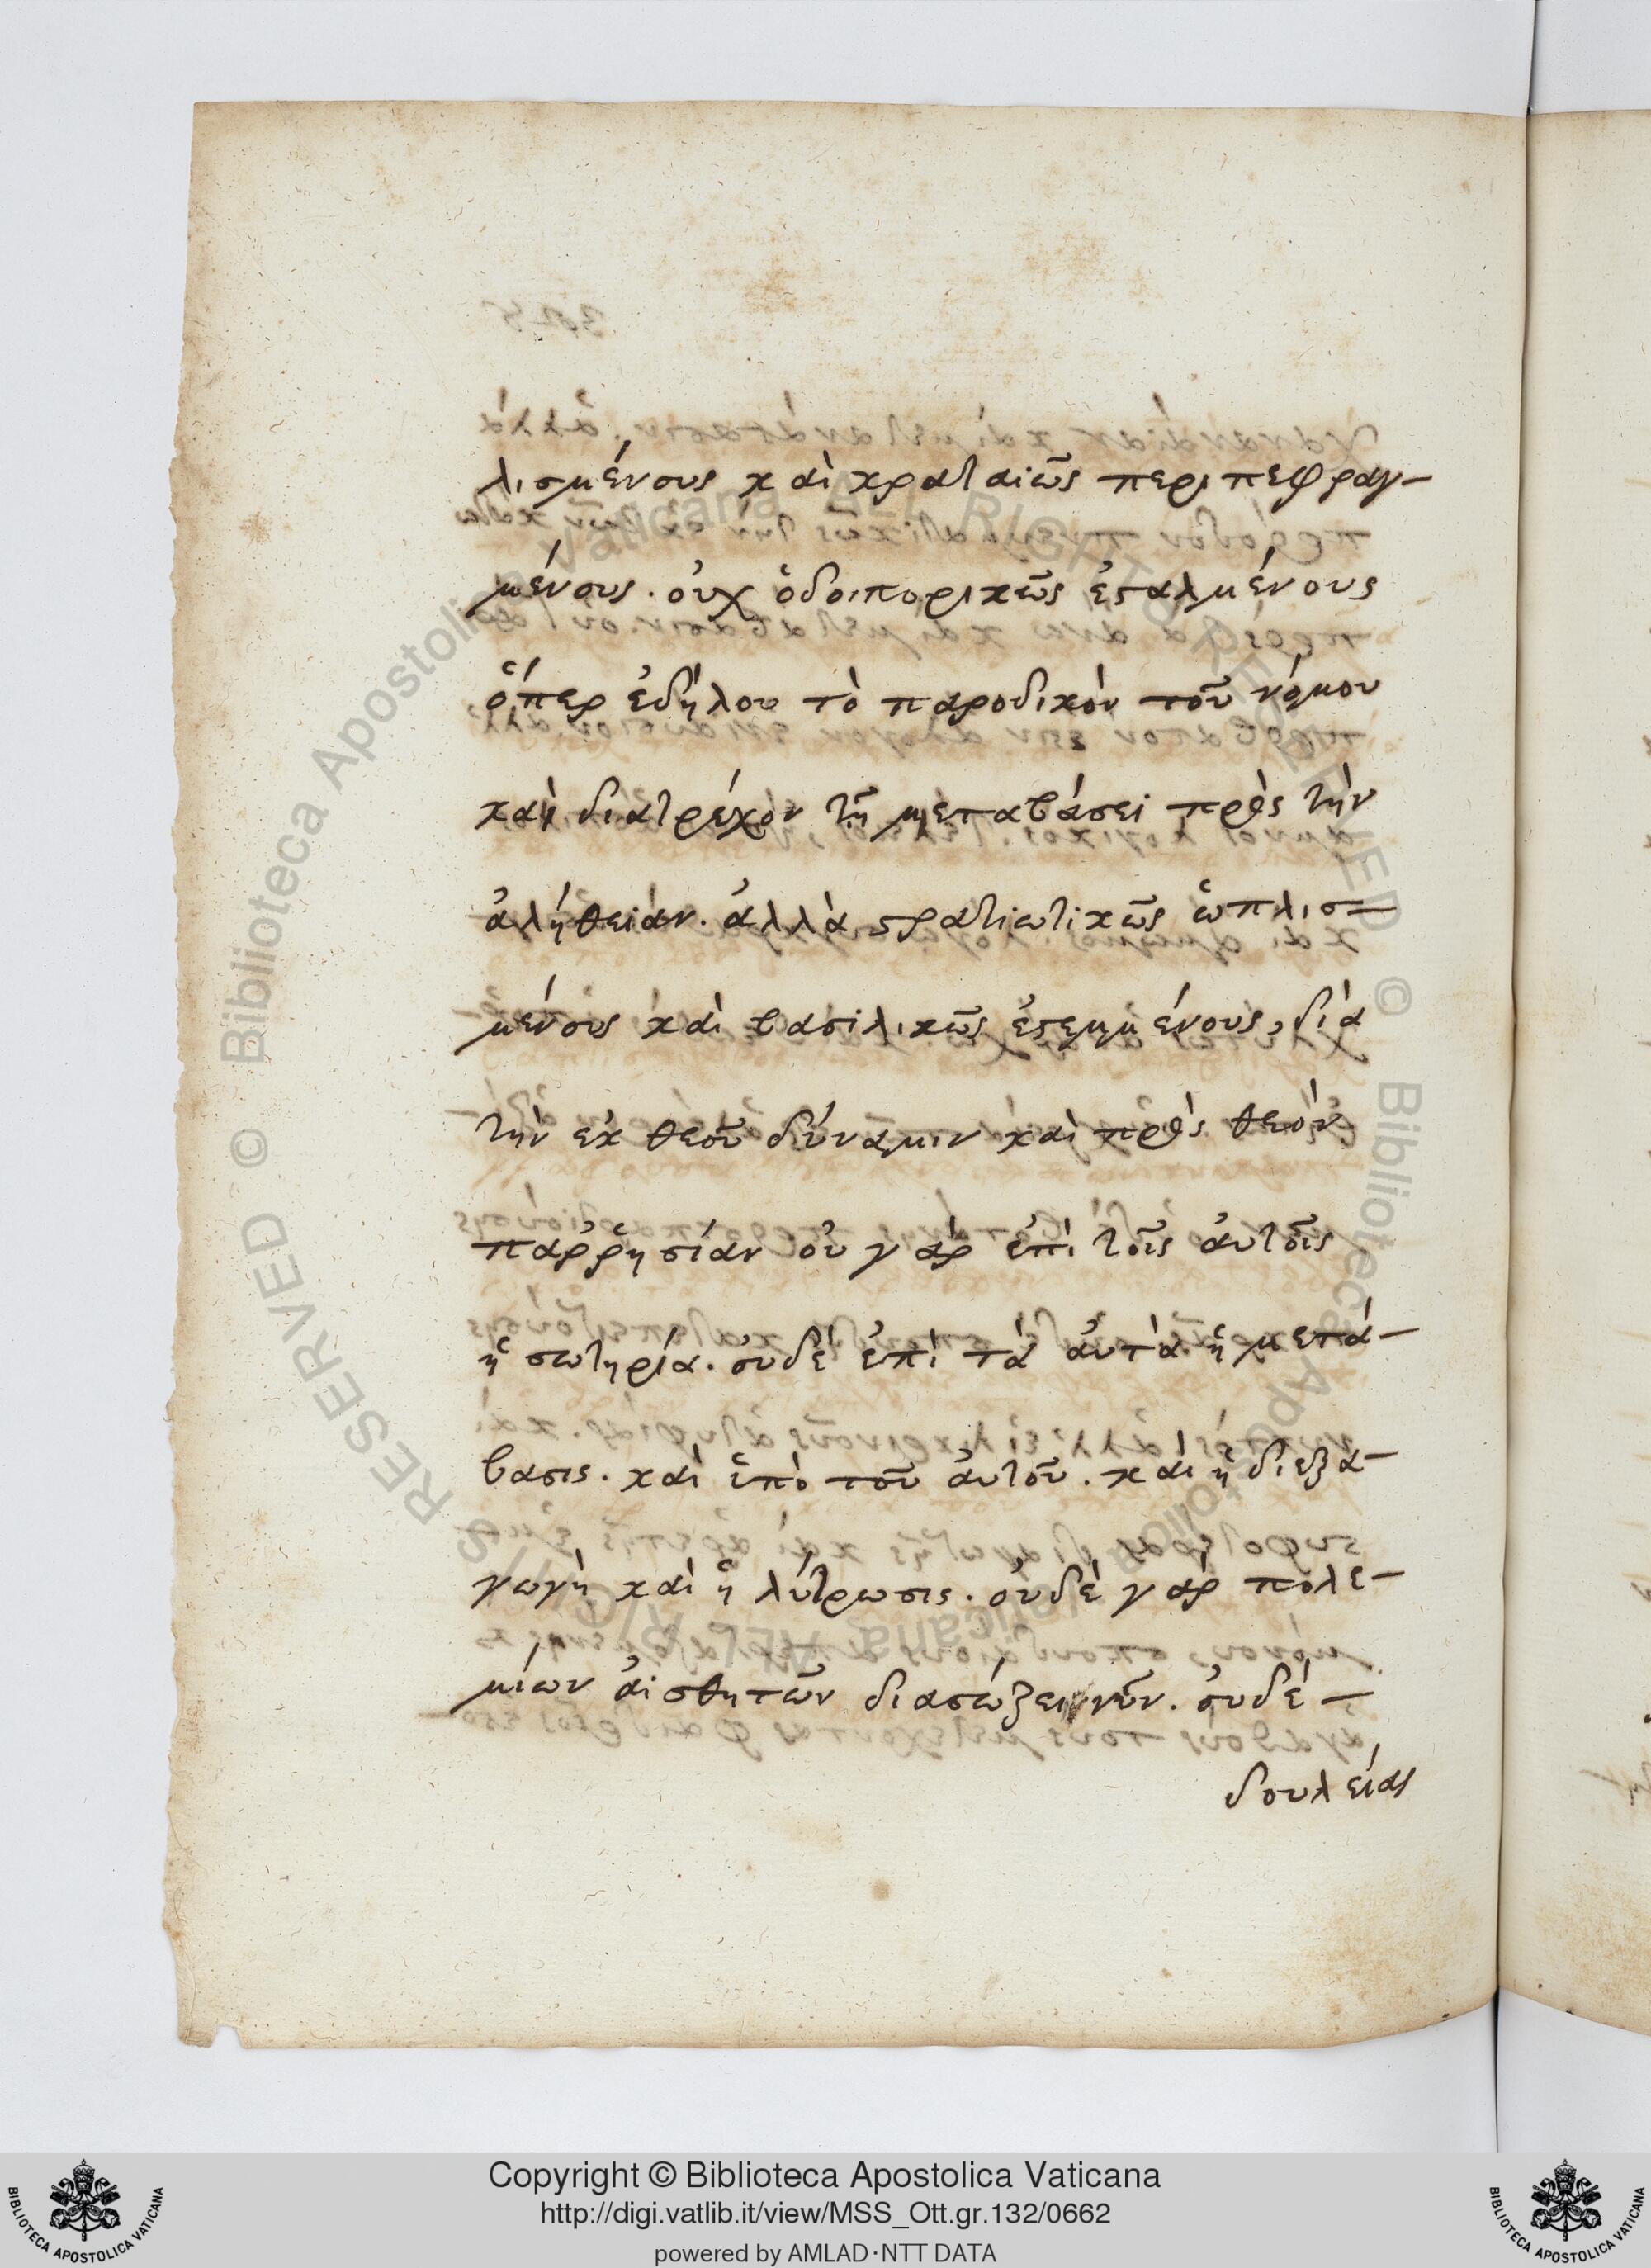 λισμένους καὶ κραταιῶς περιπεφραγ-
μένους. οὐχ ὁδοιπορικῶς ἐσταλμένους
ὅπερ ἐδήλου τὸ παροδικὸν τοῦ νόμου
καὶ διατρέχον τῇ μεταβάσει πρὸς τὴν
ἀλήθειαν. ἀλλὰ στρατιωτικῶς ὡπλισ-
μένους καὶ βασιλικῶς ἐστεμμένους, διὰ
τὴν ἐκ θεοῦ δύναμιν καὶ πρὸς θεὸν
παῤῥησίαν οὐ γὰρ ἐπὶ τοῖς αὐτοῖς
ἡ σωτηρία. οὐδὲ ἐπὶ τὰ αὐτὰ ἡ μετά-
βασις. καὶ ὑπὸ τοῦ αὐτοῦ. καὶ ἡ διεξα-
γωγὴ καὶ ἡ λύτρωσις. οὐδὲ γὰρ πολε-
μίων αἰσθητῶν διασώζει νῦν. οὐδὲ-
δουλείας
Copyright © Biblioteca Apostolica Vaticana
http://digi.vatlib.it/view/MSS_Ott.gr.132/0662
powered by AMLAD·NTT DATA
BIBLIOTECA APOSTOLICA VATICANA
BIBLIOTECA APOSTOLICA VATICANA